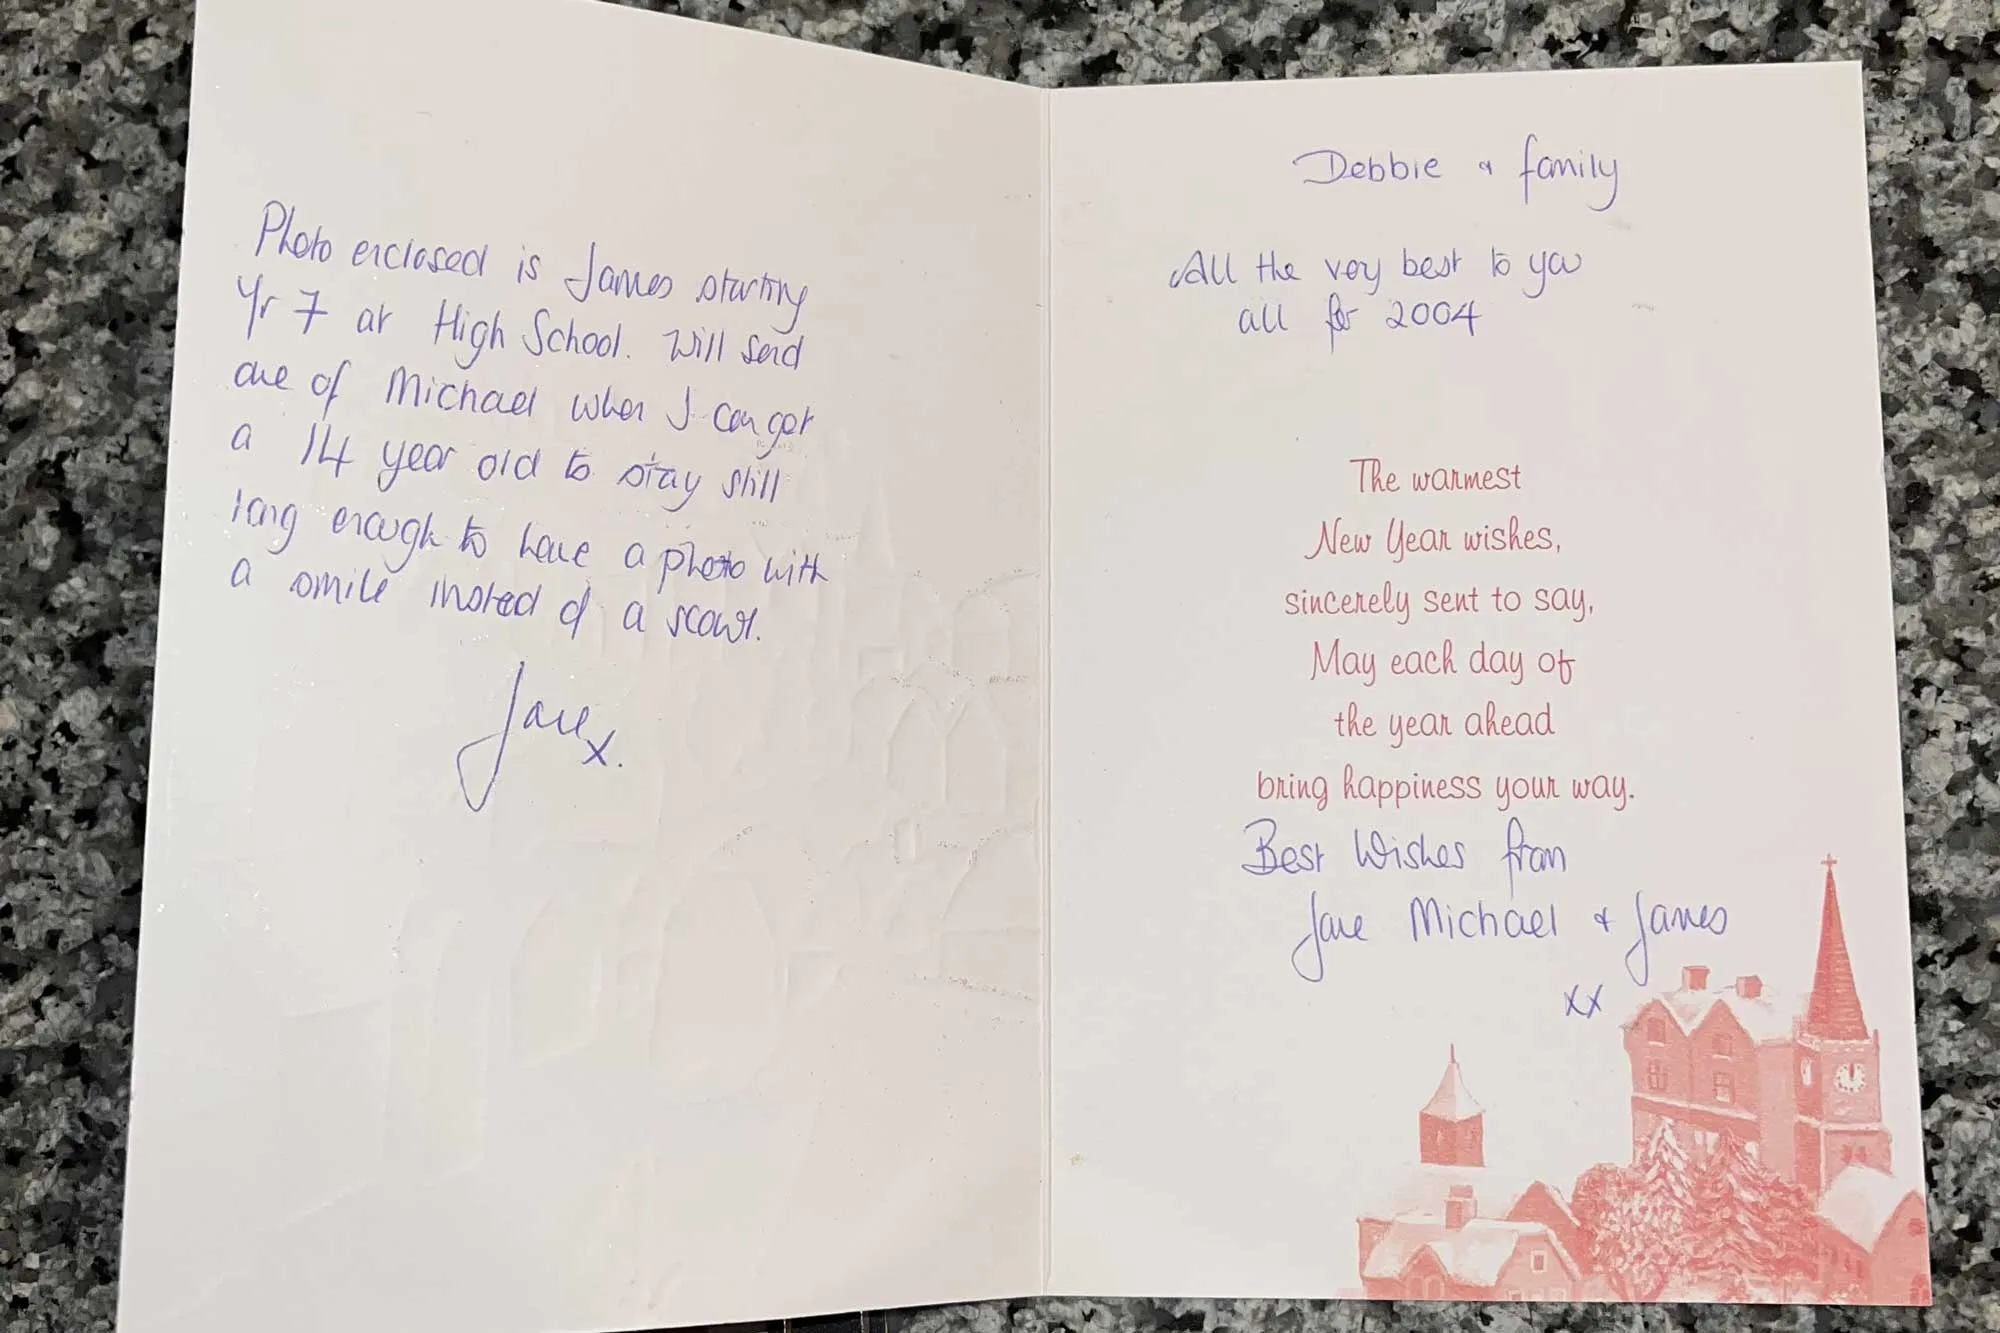 Photo enclosed is James starting
Yr 7 at High School. Will send
one of Michael when I can get
a 14 year old to stay still
long enough to have a photo with
a smile instead of a scowl.
Jane x.
Debbie & family
All the very best to you
all for 2004
The warmest
New Year wishes,
sincerely sent to say,
May each day of
the year ahead
bring happiness your way.
Best Wishes from
Jane Michael & James
xx